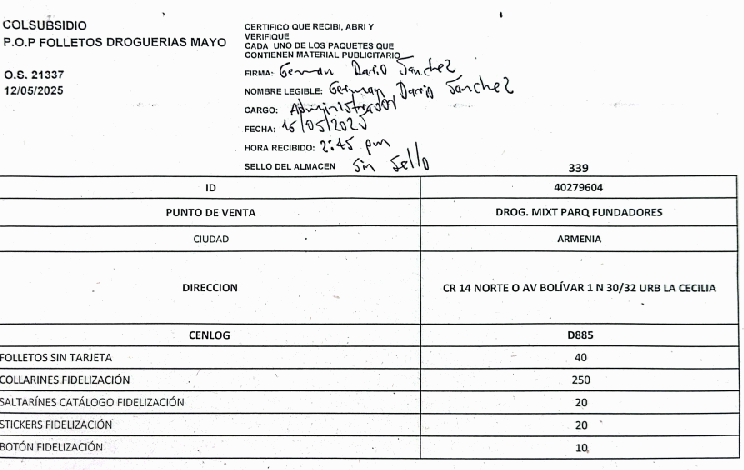 COLSUBSIDIO
P.O.P FOLLETOS DROGUERIAS MAYO
O.S. 21337
12/05/2025
CERTIFICO QUE RECIBI, ABRI Y
VERIFIQUE
CADA UNO DE LOS PAQUETES QUE
CONTIENEN MATERIAL PUBLICITARIO
FIRMA: German Dario Sanchez
NOMBRE LEGIBLE: German Dario Sanchez
CARGO: Administrador
FECHA: 15/05/2025
HORA RECIBIDO: 2:45 pm
SELLO DEL ALMACEN Sin Sello
339
ID 40279604
PUNTO DE VENTA DROG. MIXT PARQ FUNDADORES
CIUDAD ARMENIA
DIRECCION CR 14 NORTE O AV BOLÍVAR 1 N 30/32 URB LA CECILIA
CENLOG D885
FOLLETOS SIN TARJETA 40
COLLARINES FIDELIZACIÓN 250
SALTARÍNES CATÁLOGO FIDELIZACIÓN 20
STICKERS FIDELIZACIÓN 20
BOTÓN FIDELIZACIÓN 10